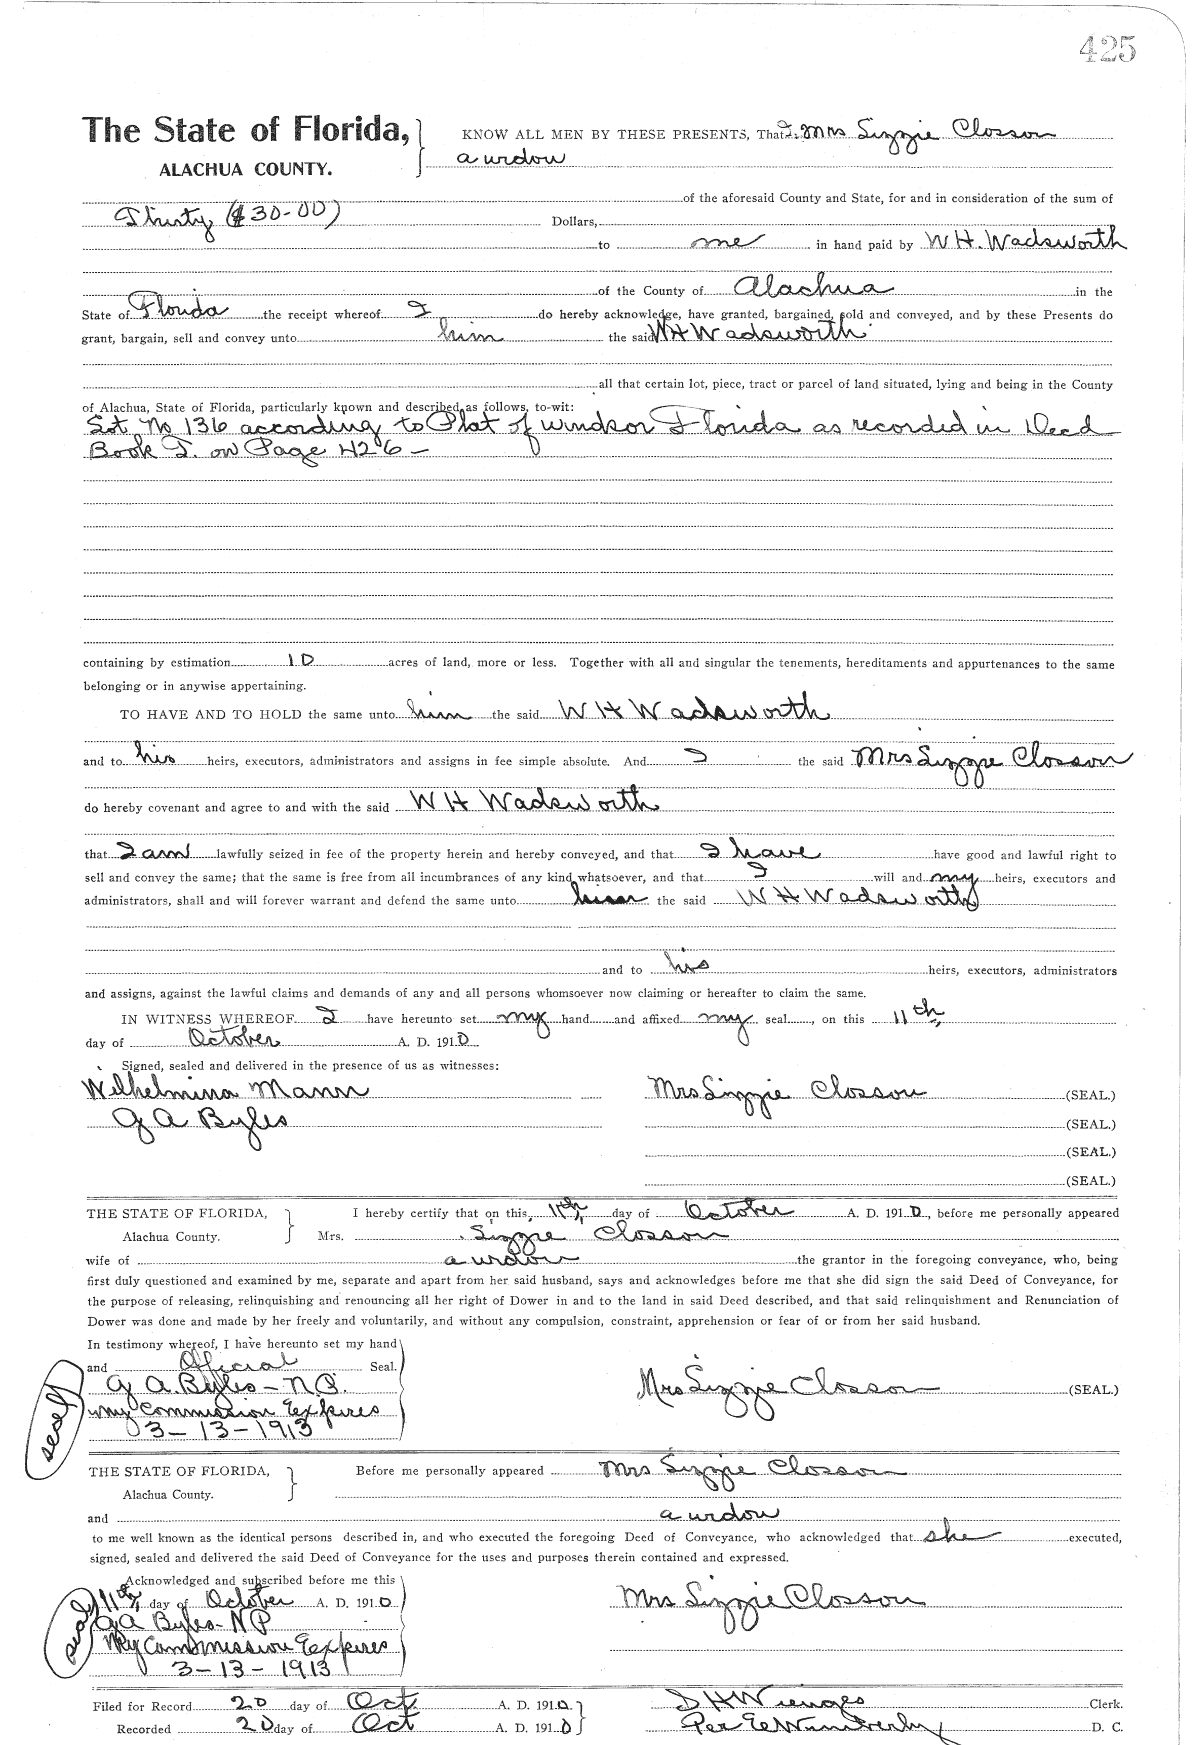 425
The State of Florida, KNOW ALL MEN BY THESE PRESENTS, That I, Mrs Lizzie Closson
ALACHUA COUNTY. a widow
of the aforesaid County and State, for and in consideration of the sum of
Thirty ($30-00) Dollars,
to me in hand paid by W H. Wadsworth
of the County of Alachua in the
State of Florida the receipt whereof I do hereby acknowledge, have granted, bargained, sold and conveyed, and by these Presents do
grant, bargain, sell and convey unto him the said W H Wadsworth
all that certain lot, piece, tract or parcel of land situated, lying and being in the County
of Alachua, State of Florida, particularly known and described as follows, to-wit:
Lot No 136 according to Plat of Windsor Florida as recorded in Deed
Book I. on Page 426 -
containing by estimation 10 acres of land, more or less. Together with all and singular the tenements, hereditaments and appurtenances to the same
belonging or in anywise appertaining.
TO HAVE AND TO HOLD the same unto him the said W H Wadsworth
and to his heirs, executors, administrators and assigns in fee simple absolute. And I the said Mrs Lizzie Closson
do hereby covenant and agree to and with the said W H Wadsworth
that I am lawfully seized in fee of the property herein and hereby conveyed, and that I have have good and lawful right to
sell and convey the same; that the same is free from all incumbrances of any kind whatsoever, and that I will and my heirs, executors and
administrators, shall and will forever warrant and defend the same unto him the said W H Wadsworth
and to his heirs, executors, administrators
and assigns, against the lawful claims and demands of any and all persons whomsoever now claiming or hereafter to claim the same.
IN WITNESS WHEREOF I have hereunto set my hand and affixed my seal, on this 11th
day of October A. D. 1910
Signed, sealed and delivered in the presence of us as witnesses:
Wilhelmina Mann Mrs Lizzie Closson (SEAL.)
G A Byles (SEAL.)
(SEAL.)
(SEAL.)
THE STATE OF FLORIDA, I hereby certify that on this 11th day of October A. D. 1910, before me personally appeared
Alachua County. Mrs. Lizzie Closson
wife of a widow the grantor in the foregoing conveyance, who, being
first duly questioned and examined by me, separate and apart from her said husband, says and acknowledges before me that she did sign the said Deed of Conveyance, for
the purpose of releasing, relinquishing and renouncing all her right of Dower in and to the land in said Deed described, and that said relinquishment and Renunciation of
Dower was done and made by her freely and voluntarily, and without any compulsion, constraint, apprehension or fear of or from her said husband.
In testimony whereof, I have hereunto set my hand
and Official Seal.
G A. Byles - N.P. Mrs Lizzie Closson (SEAL.)
seal
My Commission Expires
3-13-1913
THE STATE OF FLORIDA, Before me personally appeared Mrs Lizzie Closson
Alachua County.
and a widow
to me well known as the identical persons described in, and who executed the foregoing Deed of Conveyance, who acknowledged that she executed,
signed, sealed and delivered the said Deed of Conveyance for the uses and purposes therein contained and expressed.
Acknowledged and subscribed before me this
11th, day of October A. D. 1910 Mrs Lizzie Closson
seal
G A Byles - N P
My Commission Expires
3-13-1913
Filed for Record 20 day of Oct A. D. 1910 Clerk.
Recorded 20 day of Oct A. D. 1910 Per D. C.